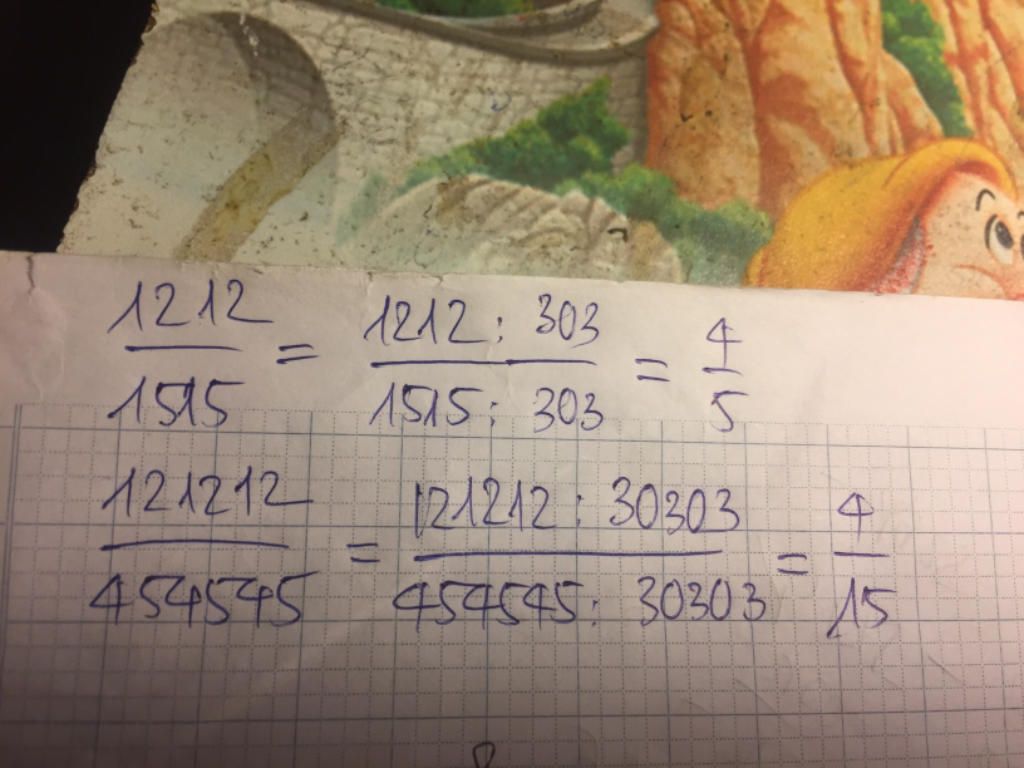 1212 / 1515 = 1212 : 303 / 1515 : 303 = 4 / 5
121212 / 454545 = 121212 : 30303 / 454545 : 30303 = 4 / 15